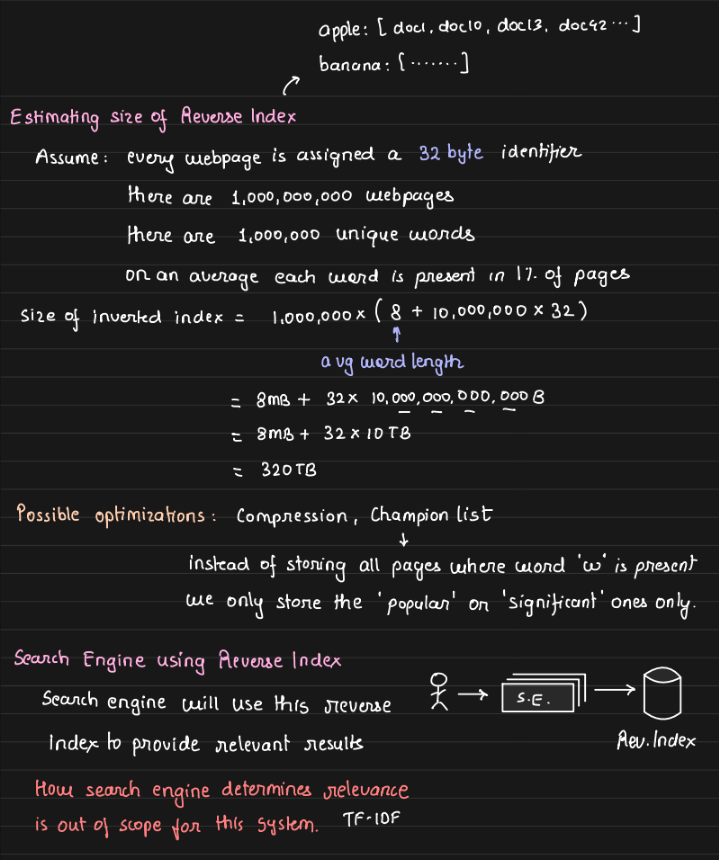 apple: [ doc1, doc10, doc13, doc42 ... ]
banana: [ ....... ]
Estimating size of Reverse Index
Assume: every webpage is assigned a 32 byte identifier
there are 1,000,000,000 webpages
there are 1,000,000 unique words
on an average each word is present in 1% of pages
Size of inverted index = 1,000,000 × ( 8 + 10,000,000 × 32 )
avg word length
= 8MB + 32 × 10,000,000,000,000 B
= 8MB + 32 × 10 TB
= 320 TB
Possible optimizations: Compression, Champion list
instead of storing all pages where word 'w' is present
we only store the 'popular' or 'significant' ones only.
Search Engine using Reverse Index
Search engine will use this reverse
index to provide relevant results
S.E.
Rev. Index
How search engine determines relevance
is out of scope for this system. TF-IDF